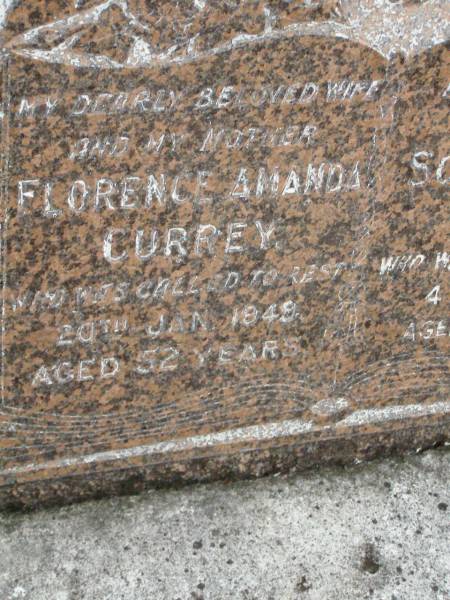 MY DEARLY BELOVED WIFE
AND MY MOTHER
FLORENCE AMANDA
CURREY.
WHO WAS CALLED TO REST
20TH JAN. 1948.
AGED 52 YEARS.
SO
WHO W
4
AGE